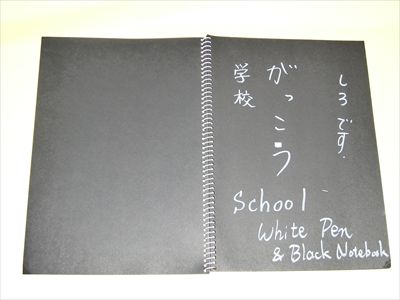 しろです.
がっこう
学校
School
White Pen
& Black Notebook